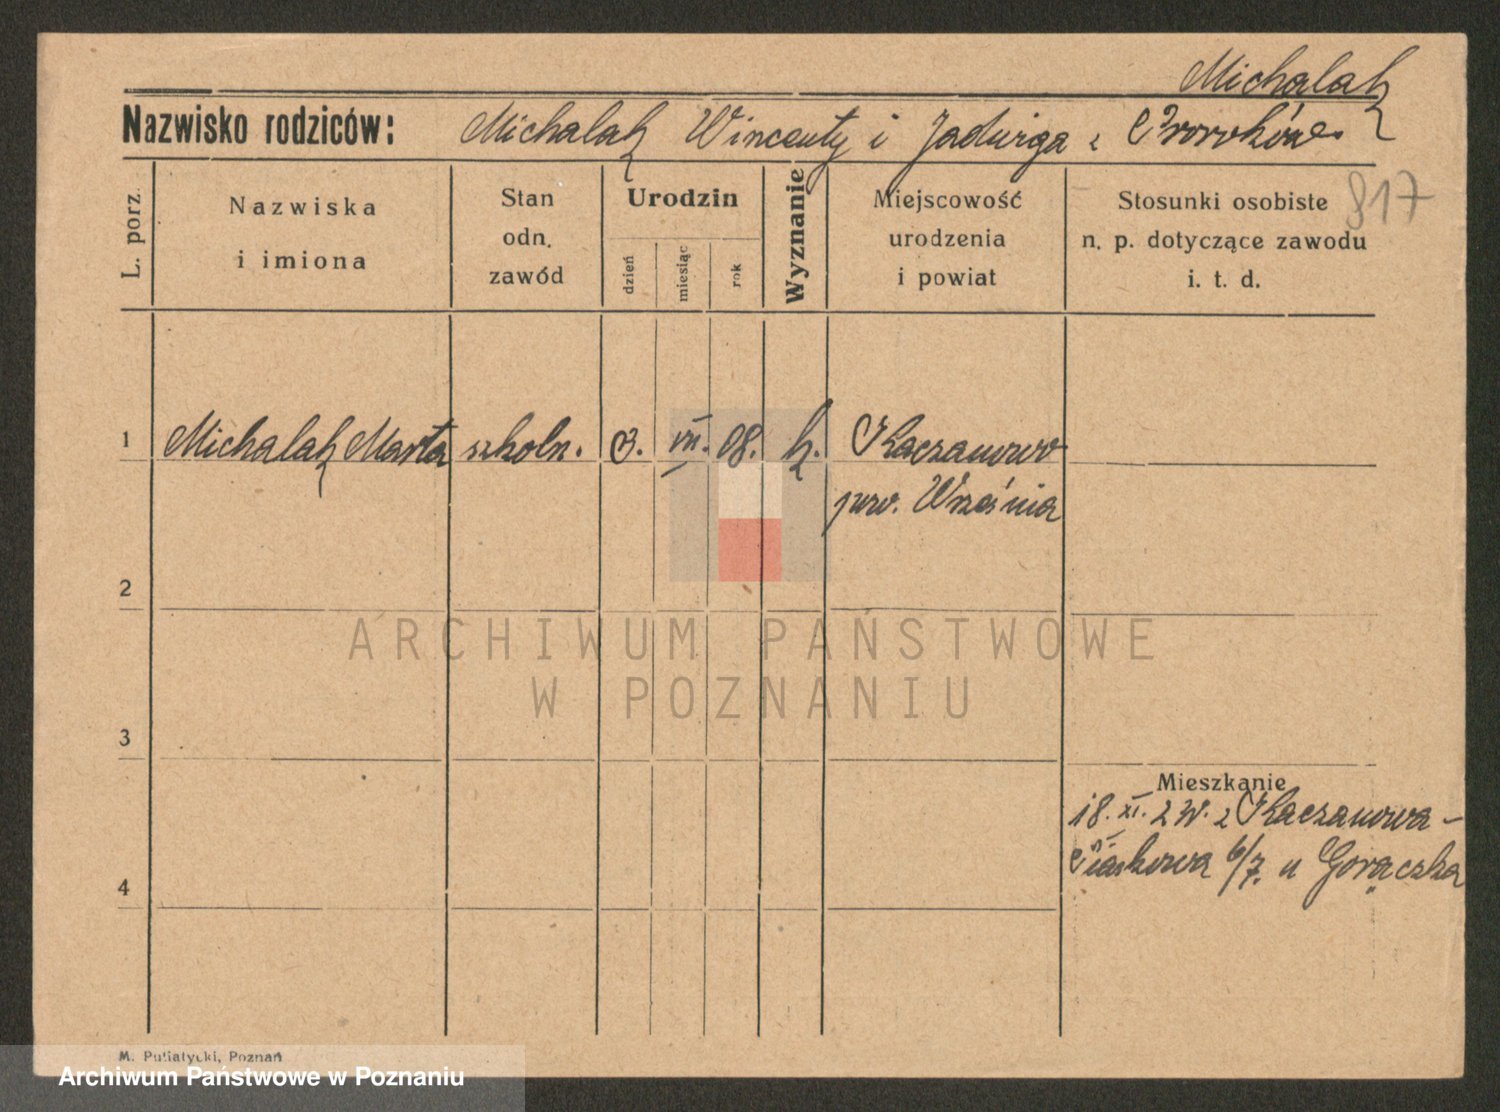 Michalak
Nazwisko rodziców: Michalak Wincenty i Jadwiga z
817
L. porz.
Nazwiska
i imiona
Stan
odn.
zawód
Urodzin
dzień
miesiąc
rok
Wyznanie
Miejscowość
urodzenia
i powiat
Stosunki osobiste
n. p. dotyczące zawodu
i. t. d.
1 Michalak Marta szkoln. 3. VII. 08. k. Kaczanowo
pow. Września
2
ARCHIWUM PAŃSTWOWE
W POZNANIU
3
Mieszkanie
18. XI. z Kaczanowa –
Piaskowa 6/7. u Gorączka
4
M. Putiatycki, Poznań
Archiwum Państwowe w Poznaniu